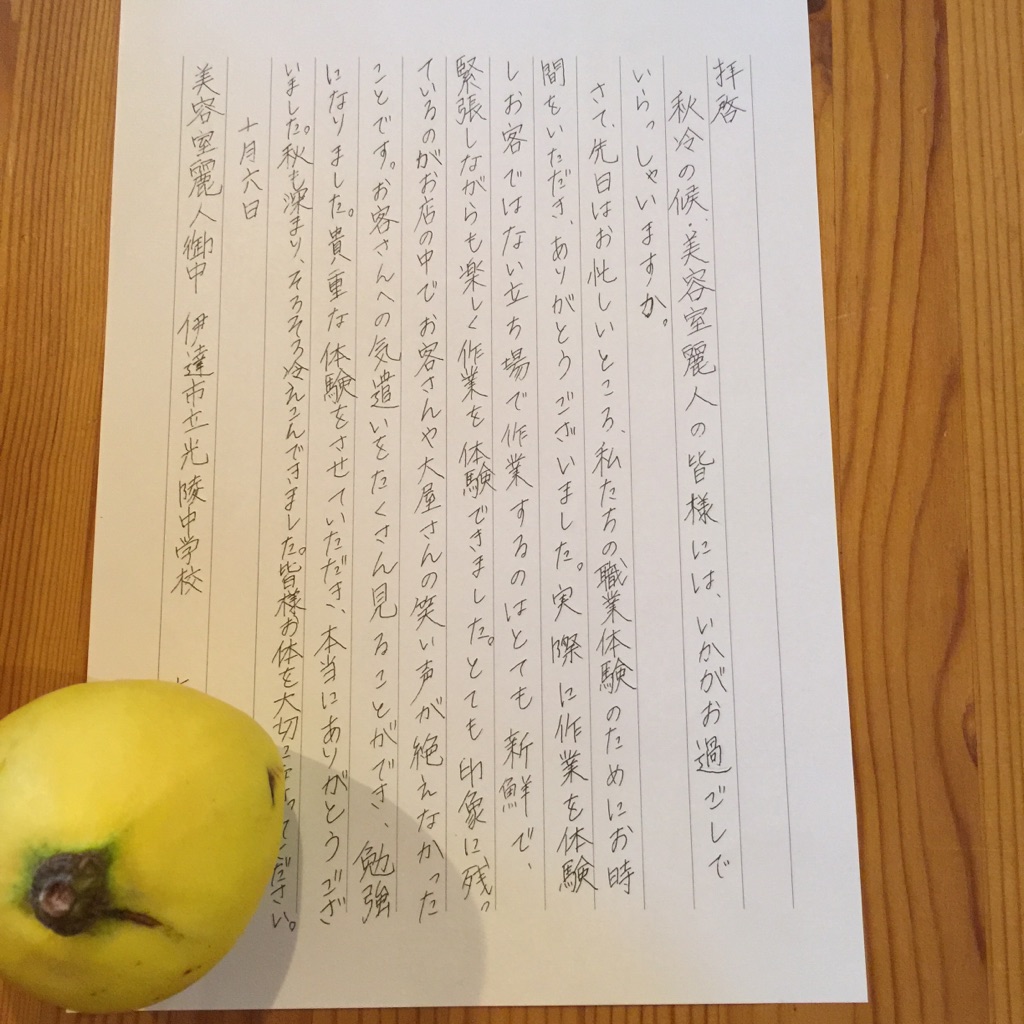 拝啓
秋冷の候、美容室麗人の皆様には、いかがお過ごしで
いらっしゃいますか。
さて、先日はお忙しいところ、私たちの職業体験のためにお時
間をいただき、ありがとうございました。実際に作業を体験
しお客ではない立ち場で作業するのはとても新鮮で、
緊張しながらも楽しく作業を体験できました。とても印象に残っ
ているのがお店の中でお客さんや大屋さんの笑い声が絶えなかった
ことです。お客さんへの気遣いをたくさん見ることができ、勉強
になりました。貴重な体験をさせていただき、本当にありがとうござ
いました。秋も深まり、そろそろ冷えこんできました。皆様お体を大切になさってください。
十月六日
美容室麗人御中 伊達市立光陵中学校